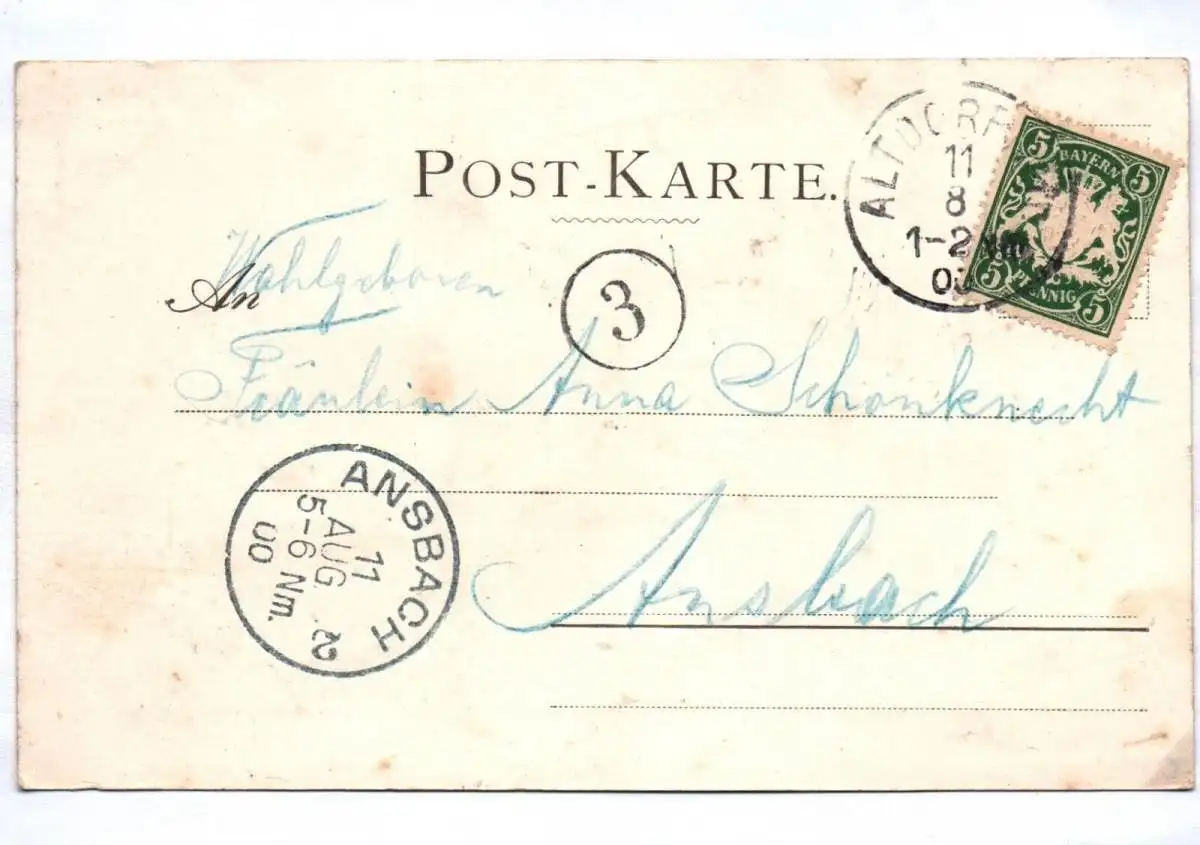 POST-KARTE.
ALTDORF
11
8
1-2 Nm
00
5 BAYERN 5
5 PFENNIG 5
An Wohlgeboren
3
Fräulein Anna Schönknecht
ANSBACH 2
11
AUG.
5-6 Nm.
00
Ansbach